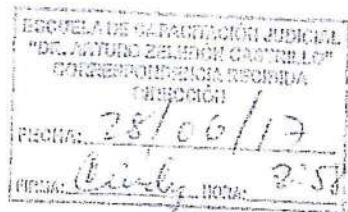 ESCUELA DE CAPACITACIÓN JUDICIAL
"DR. ARTURO ZELEDÓN CASTRILLO"
CORRESPONDENCIA RECIBIDA
DIRECCIÓN
FECHA: 28/06/17
FIRMA: HORA: